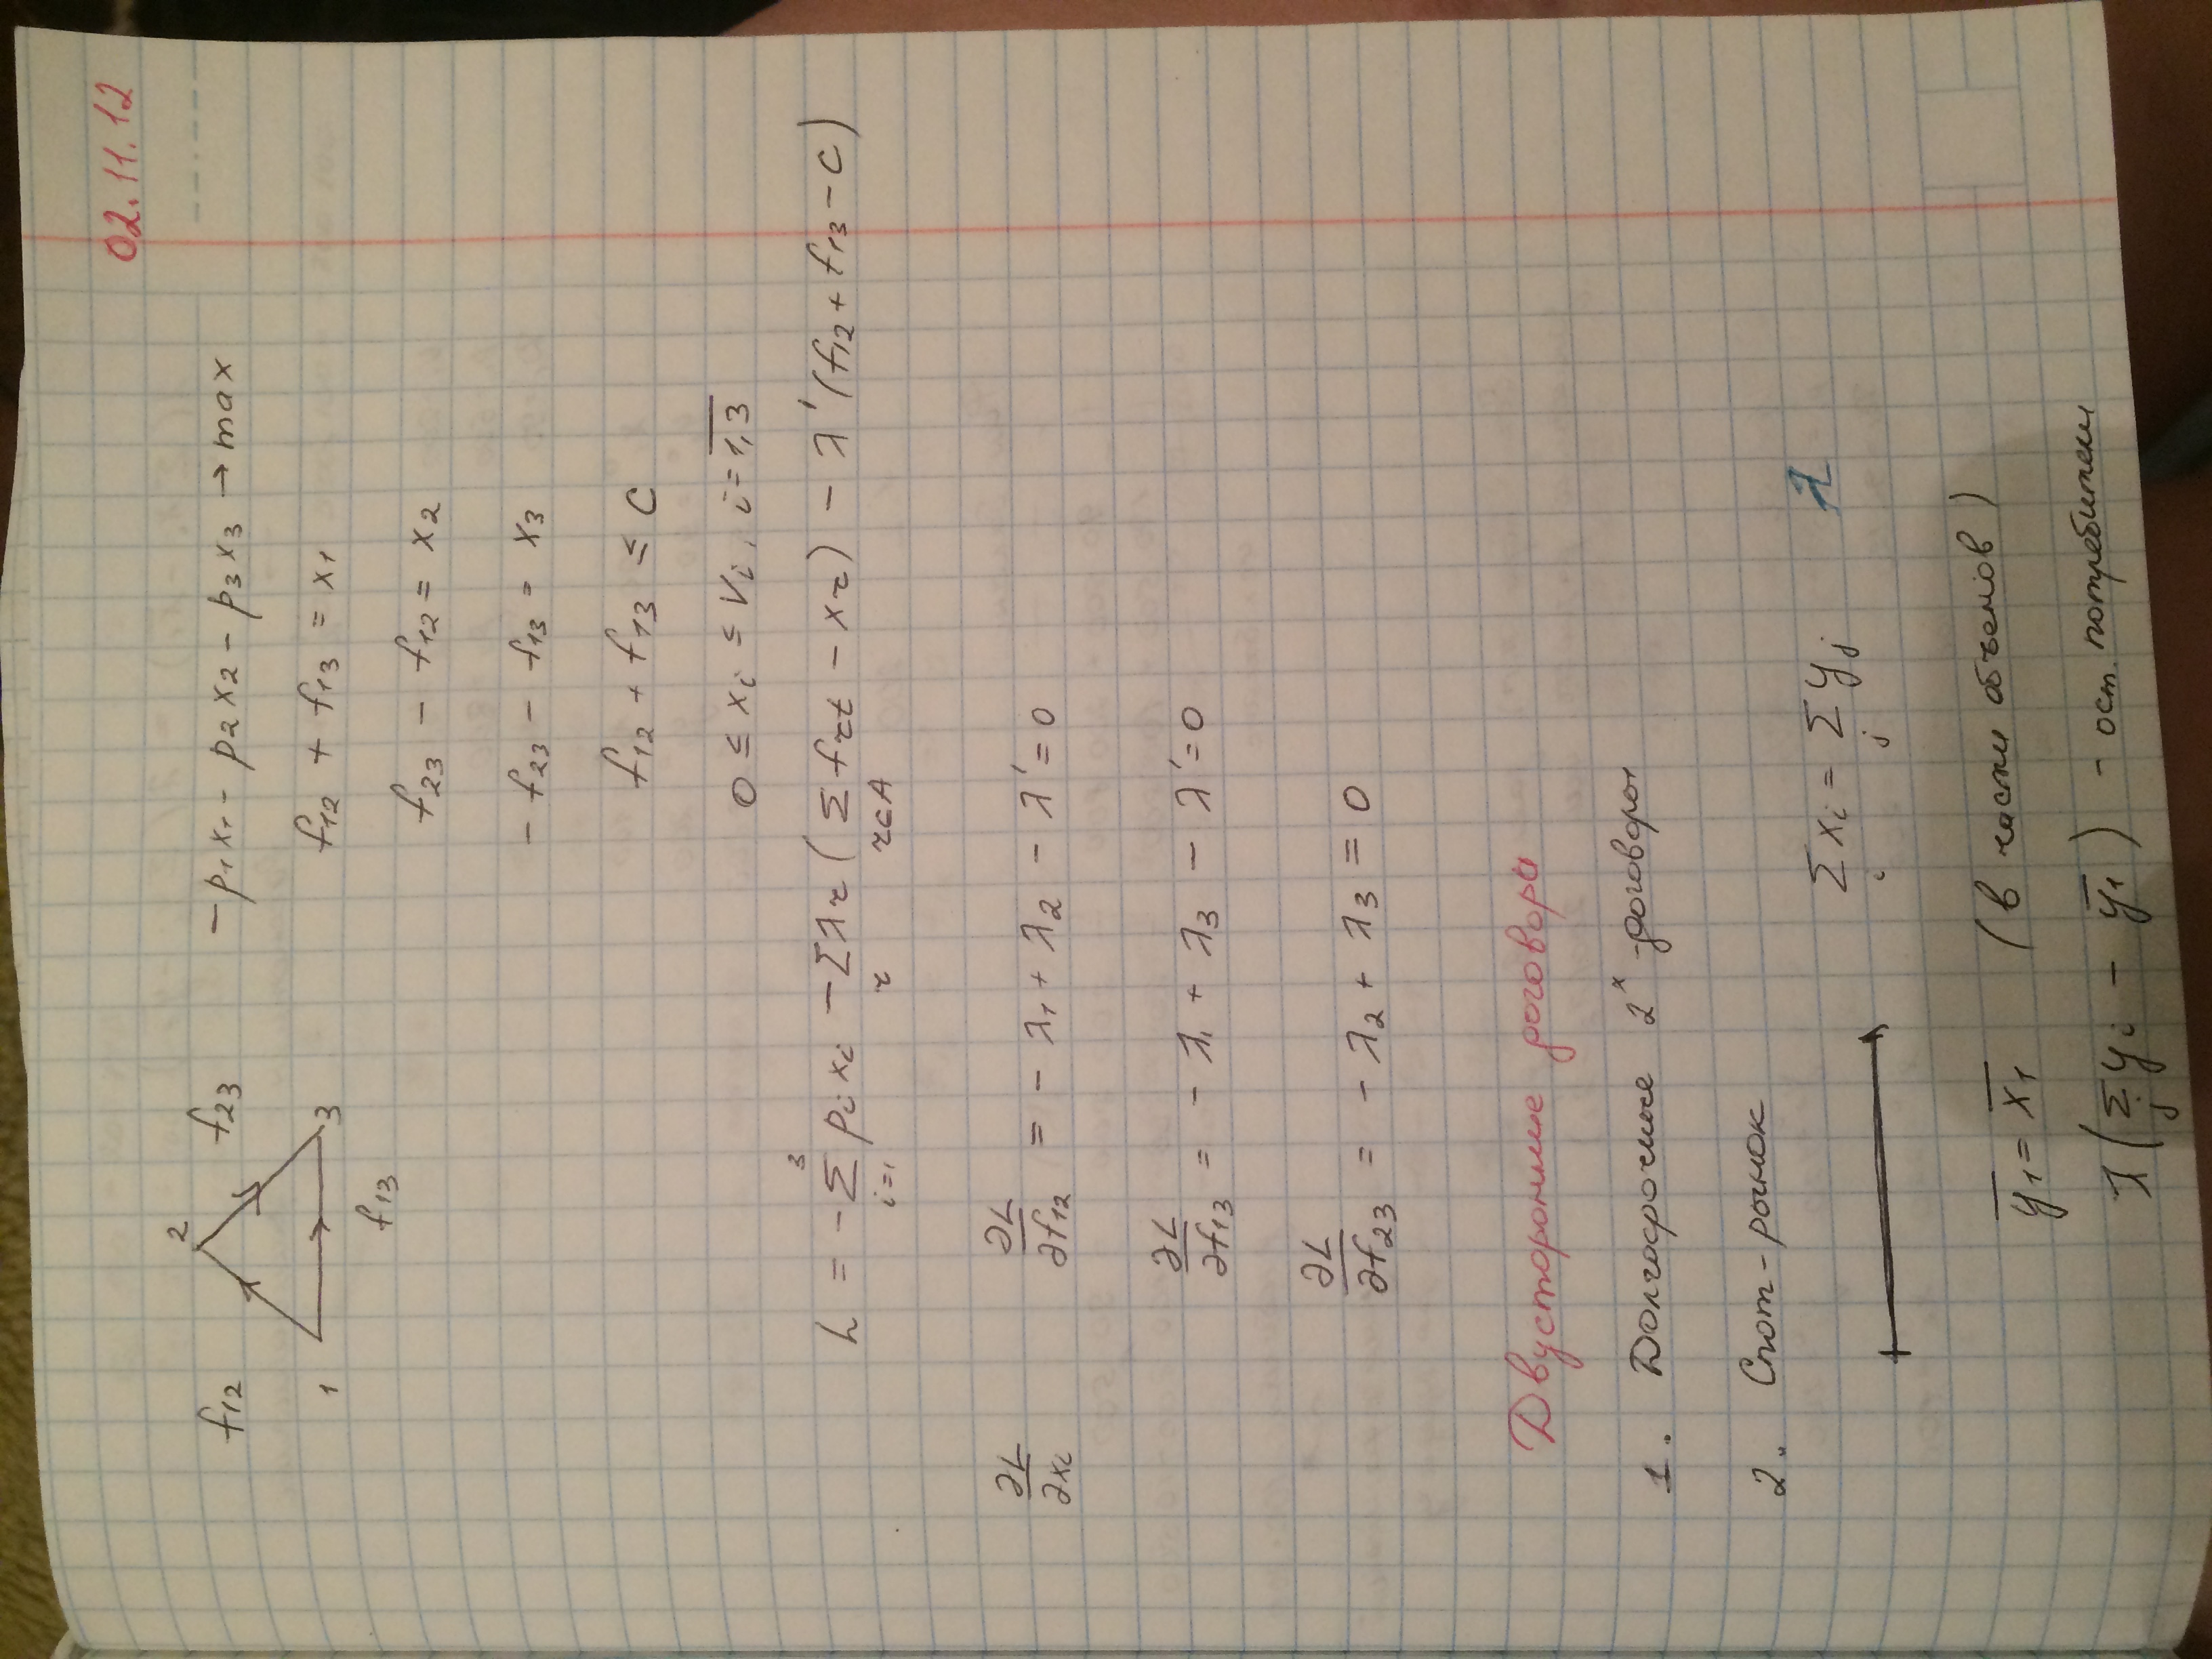 02.11.12
2
f₁₂ f₂₃
1 3
f₁₃
-p₁x₁ - p₂x₂ - p₃x₃ → max
f₁₂ + f₁₃ = x₁
f₂₃ - f₁₂ = x₂
- f₂₃ - f₁₃ = x₃
f₁₂ + f₁₃ ≤ C
0 ≤ xᵢ ≤ Vᵢ, i = \overline{1,3}
L = - \sum_{i=1}^{3} pᵢxᵢ - \sum_{r} λ_r ( \sum_{r∈A} f_{rt} - x_r ) - λ'(f₁₂ + f₁₃ - C)
∂L/∂xᵢ ∂L/∂f₁₂ = - λ₁ + λ₂ - λ' = 0
∂L/∂f₁₃ = - λ₁ + λ₃ - λ' = 0
∂L/∂f₂₃ = - λ₂ + λ₃ = 0
Двусторонние договоры
1. Долгосрочные 2ˣ договоры
2. Спот-рынок
\sum_{i} xᵢ = \sum_{j} yⱼ λ
\overline{y₁} = \overline{x₁} (в части объёмов)
λ ( \sum_{j} yᵢ - \overline{y₁} ) - ост. потребители